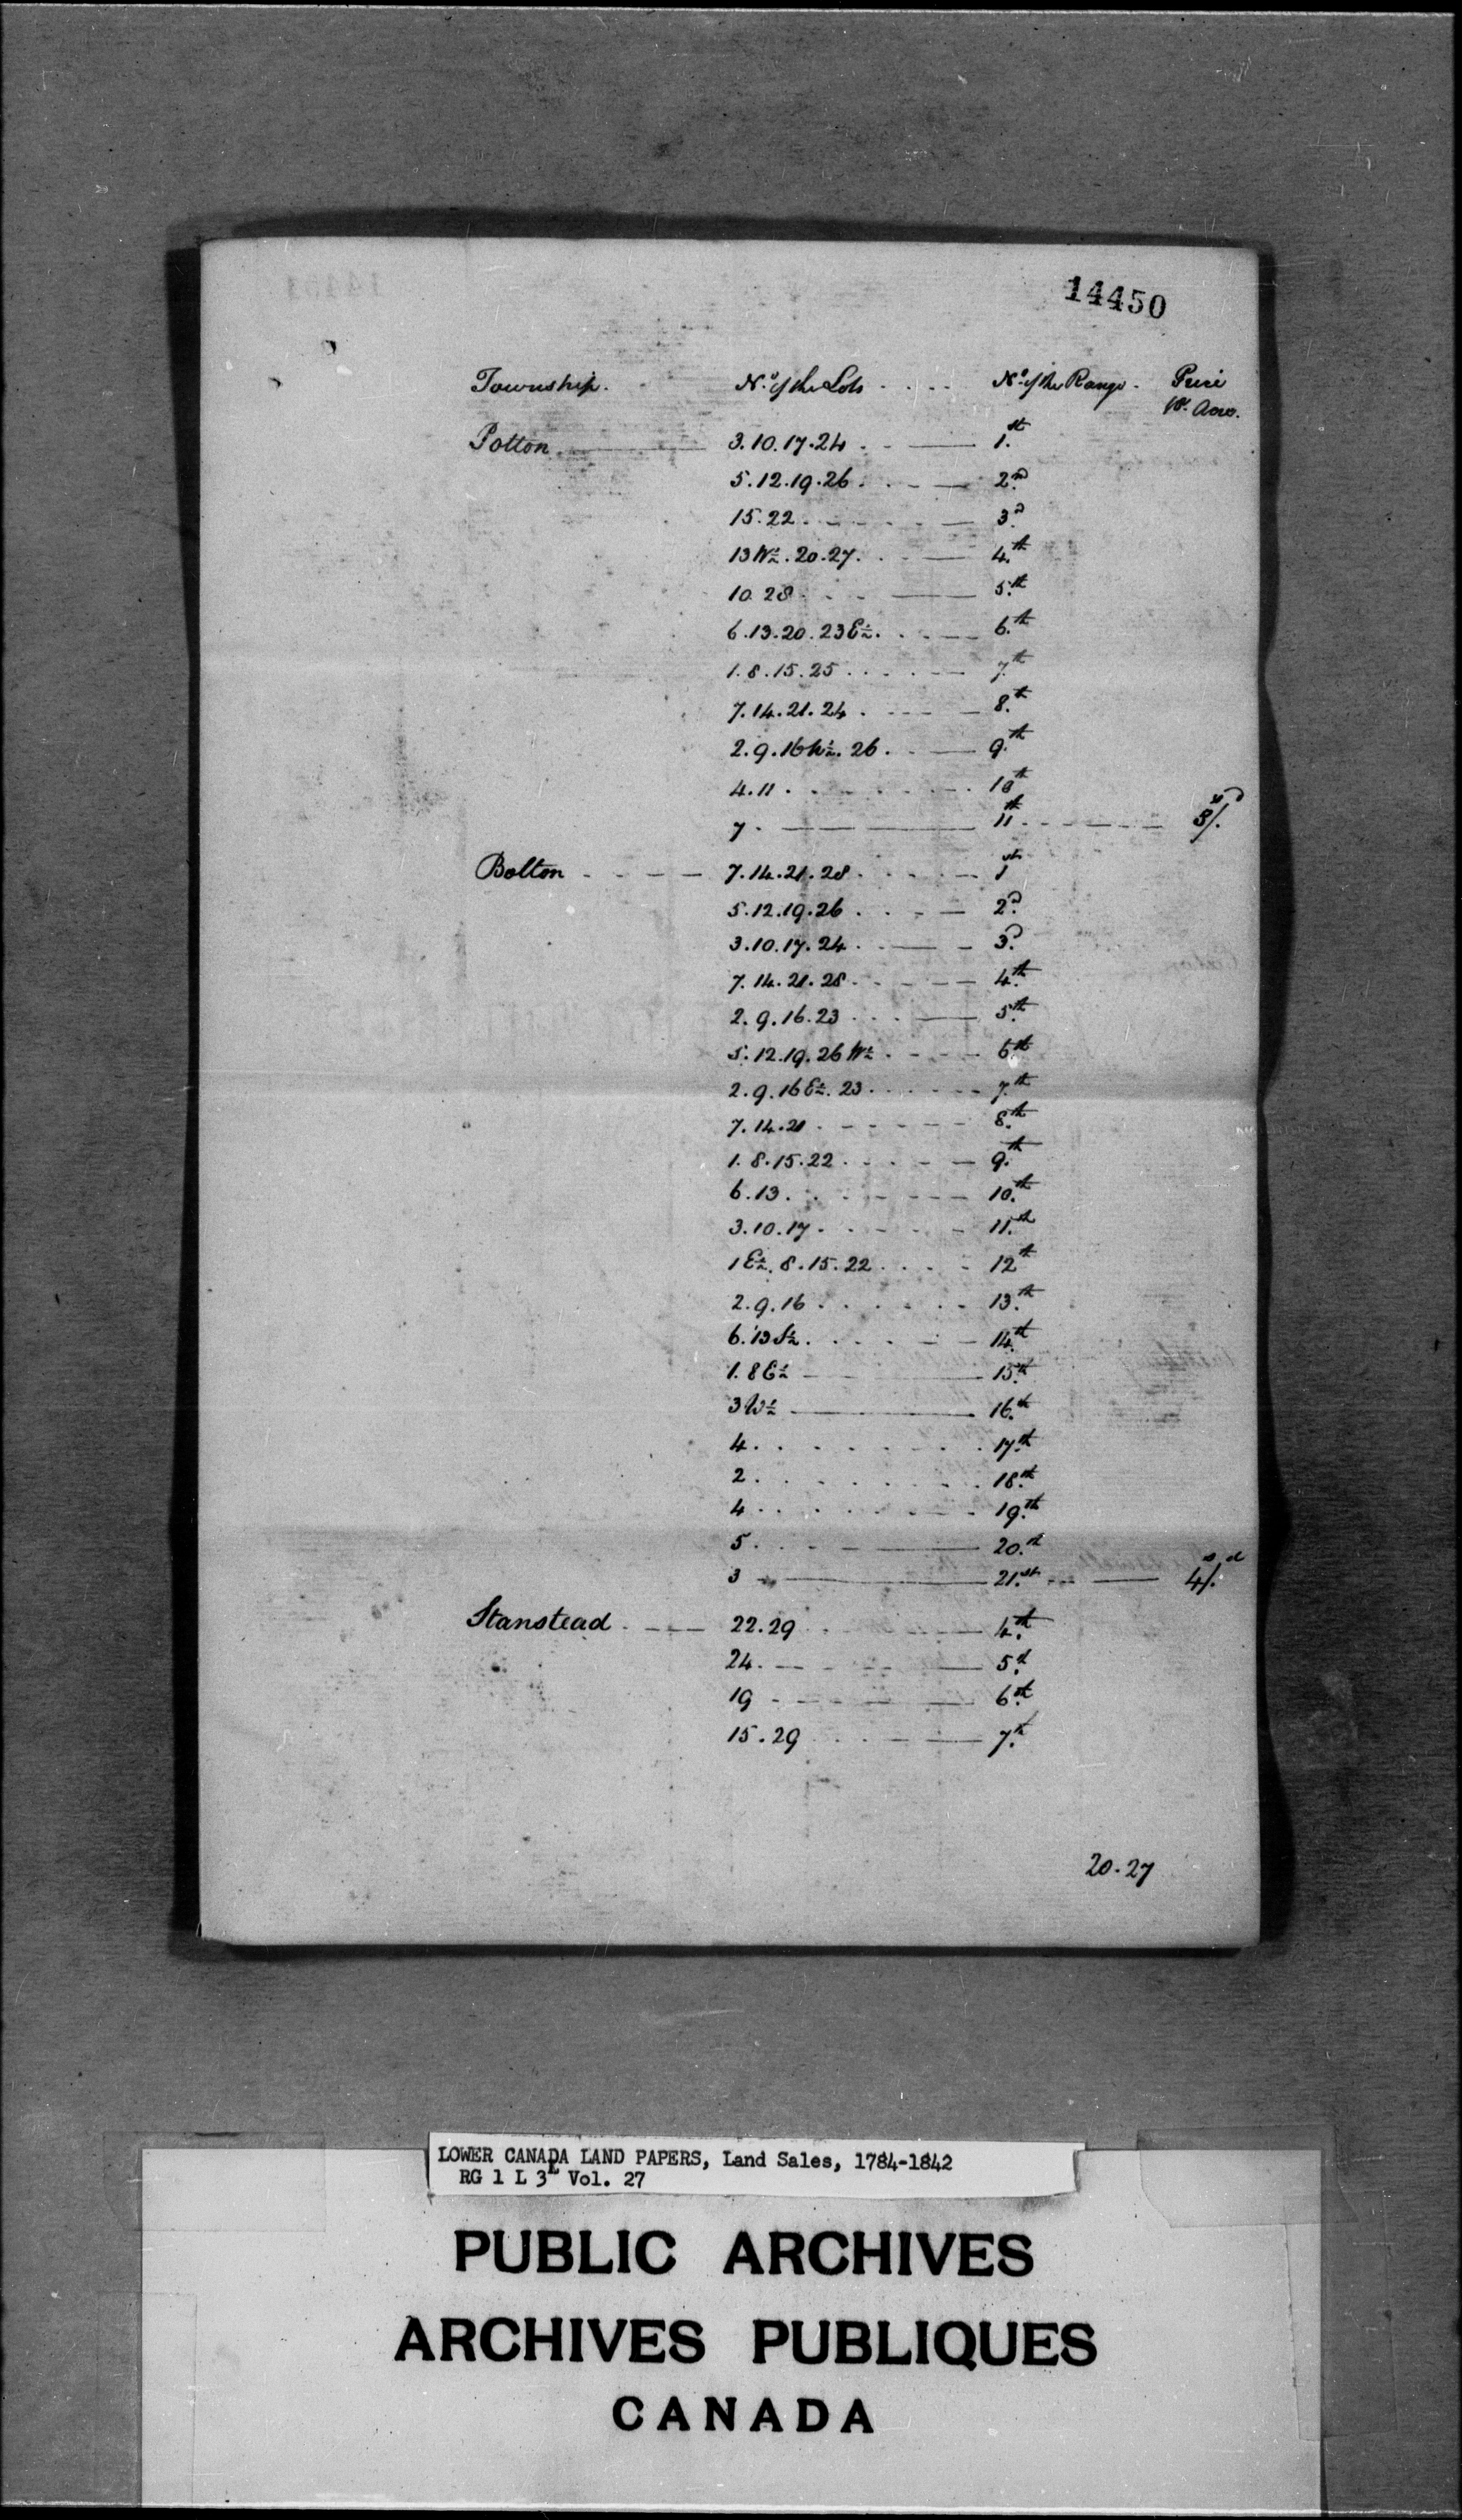 14450
Township. N.º of the Lots .... Nº of the Range. Price
pr. Acre.
Potton 3.10.17.24 1.st
5.12.19.26 2.nd
15.22 3.d
13 W½. 20.27. 4.th
10.28 5.th
6.13.20.23 E½. 6.th
1.8.15.25 7.th
7.14.21.24 8.th
2.9.16 W½. 26. 9.th
4.11 10th
7 11th
Bolton 7.14.21.28 1st
5.12.19.26 2.d
3.10.17.24 3.d
7.14.21.28 4.th
2.9.16.23 5.th
5.12.19.26 W½ 6.th
2.9.16 E½. 23 7.th
7.14.21 8.th
1.8.15.22 9.th
6.13. 10.th
3.10.17 11.th
1 E½. 8.15.22 12th
2.9.16 13.th
6.13 S½. 14.th
1.8 E½ 15.th
3 W½ 16.th
4 17.th
2 18.th
4 19.th
5 20.th
3 21.st 4/. s d
Stanstead 22.29 4.th
24. 5.th
19 6.th
15.29 7.th
20.27
LOWER CANADA LAND PAPERS, Land Sales, 1784-1842
RG 1 L 3L Vol. 27
PUBLIC ARCHIVES
ARCHIVES PUBLIQUES
CANADA